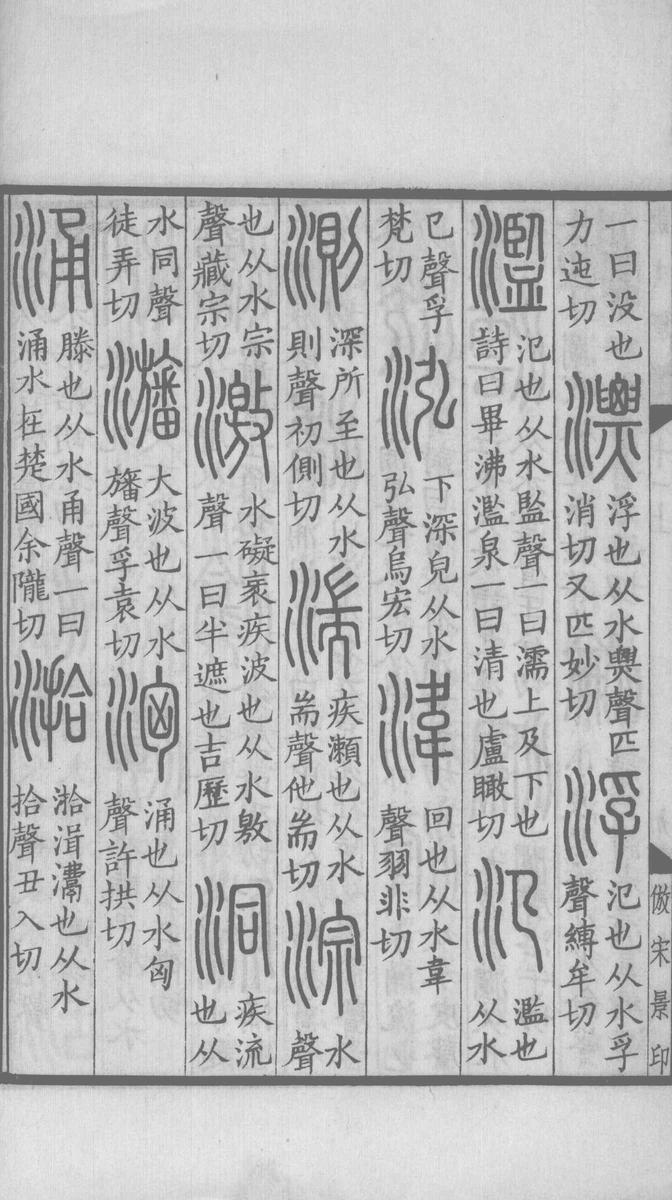 一曰没也力迍切漂浮也从水㶾聲匹消切又匹妙切浮氾也从水孚聲縛牟切
濫氾也从水監聲一曰濡上及下也詩曰畢沸濫泉一曰清也盧瞰切氾濫也从水
巳聲孚梵切泓下深皃从水弘聲烏宏切湋回也从水韋聲羽非切
測深所至也从水則聲初側切湍疾瀨也从水耑聲他耑切淙水聲
也从水宗聲藏宗切激水礙衺疾波也从水敫聲一曰半遮也吉歷切洞疾流也从
水同聲徒弄切㶕大波也从水旛聲孚袁切洶涌也从水匈聲許拱切
涌滕也从水甬聲一曰涌水在楚國余隴切湁湁湒也从水拾聲丑入切
倣宋景印